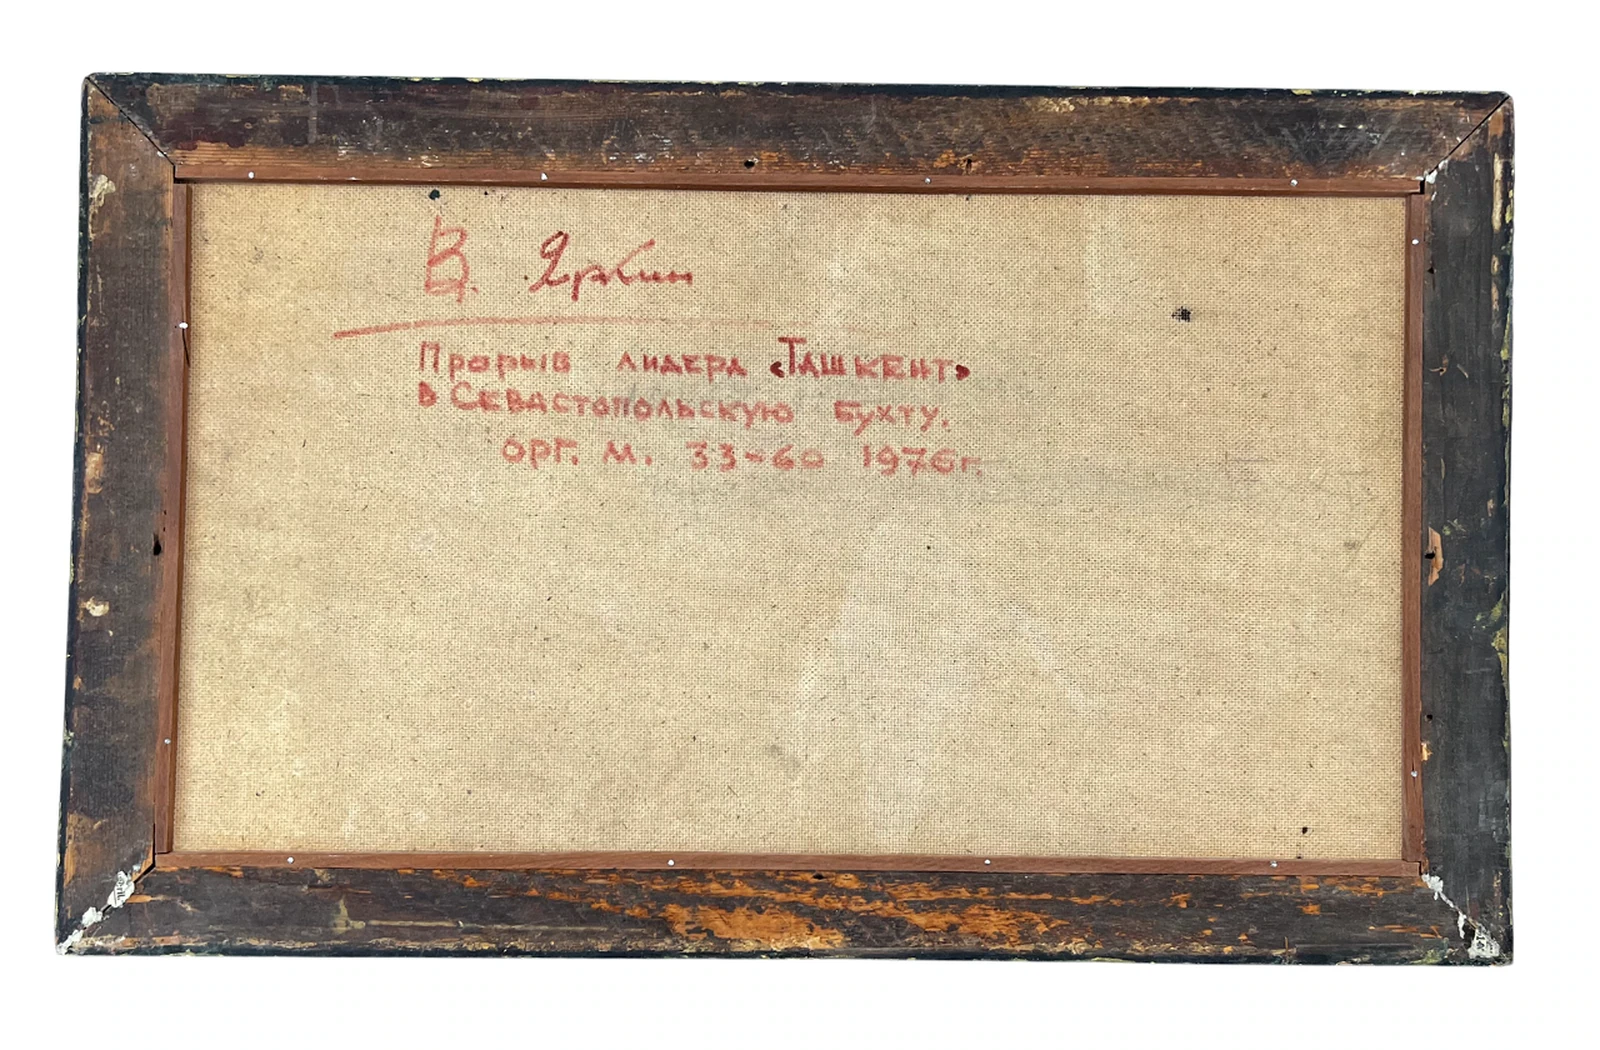 В. Яркин
Прорыв лидера «Ташкент»
в Севастопольскую бухту.
орг. м. 33-60 1976г.